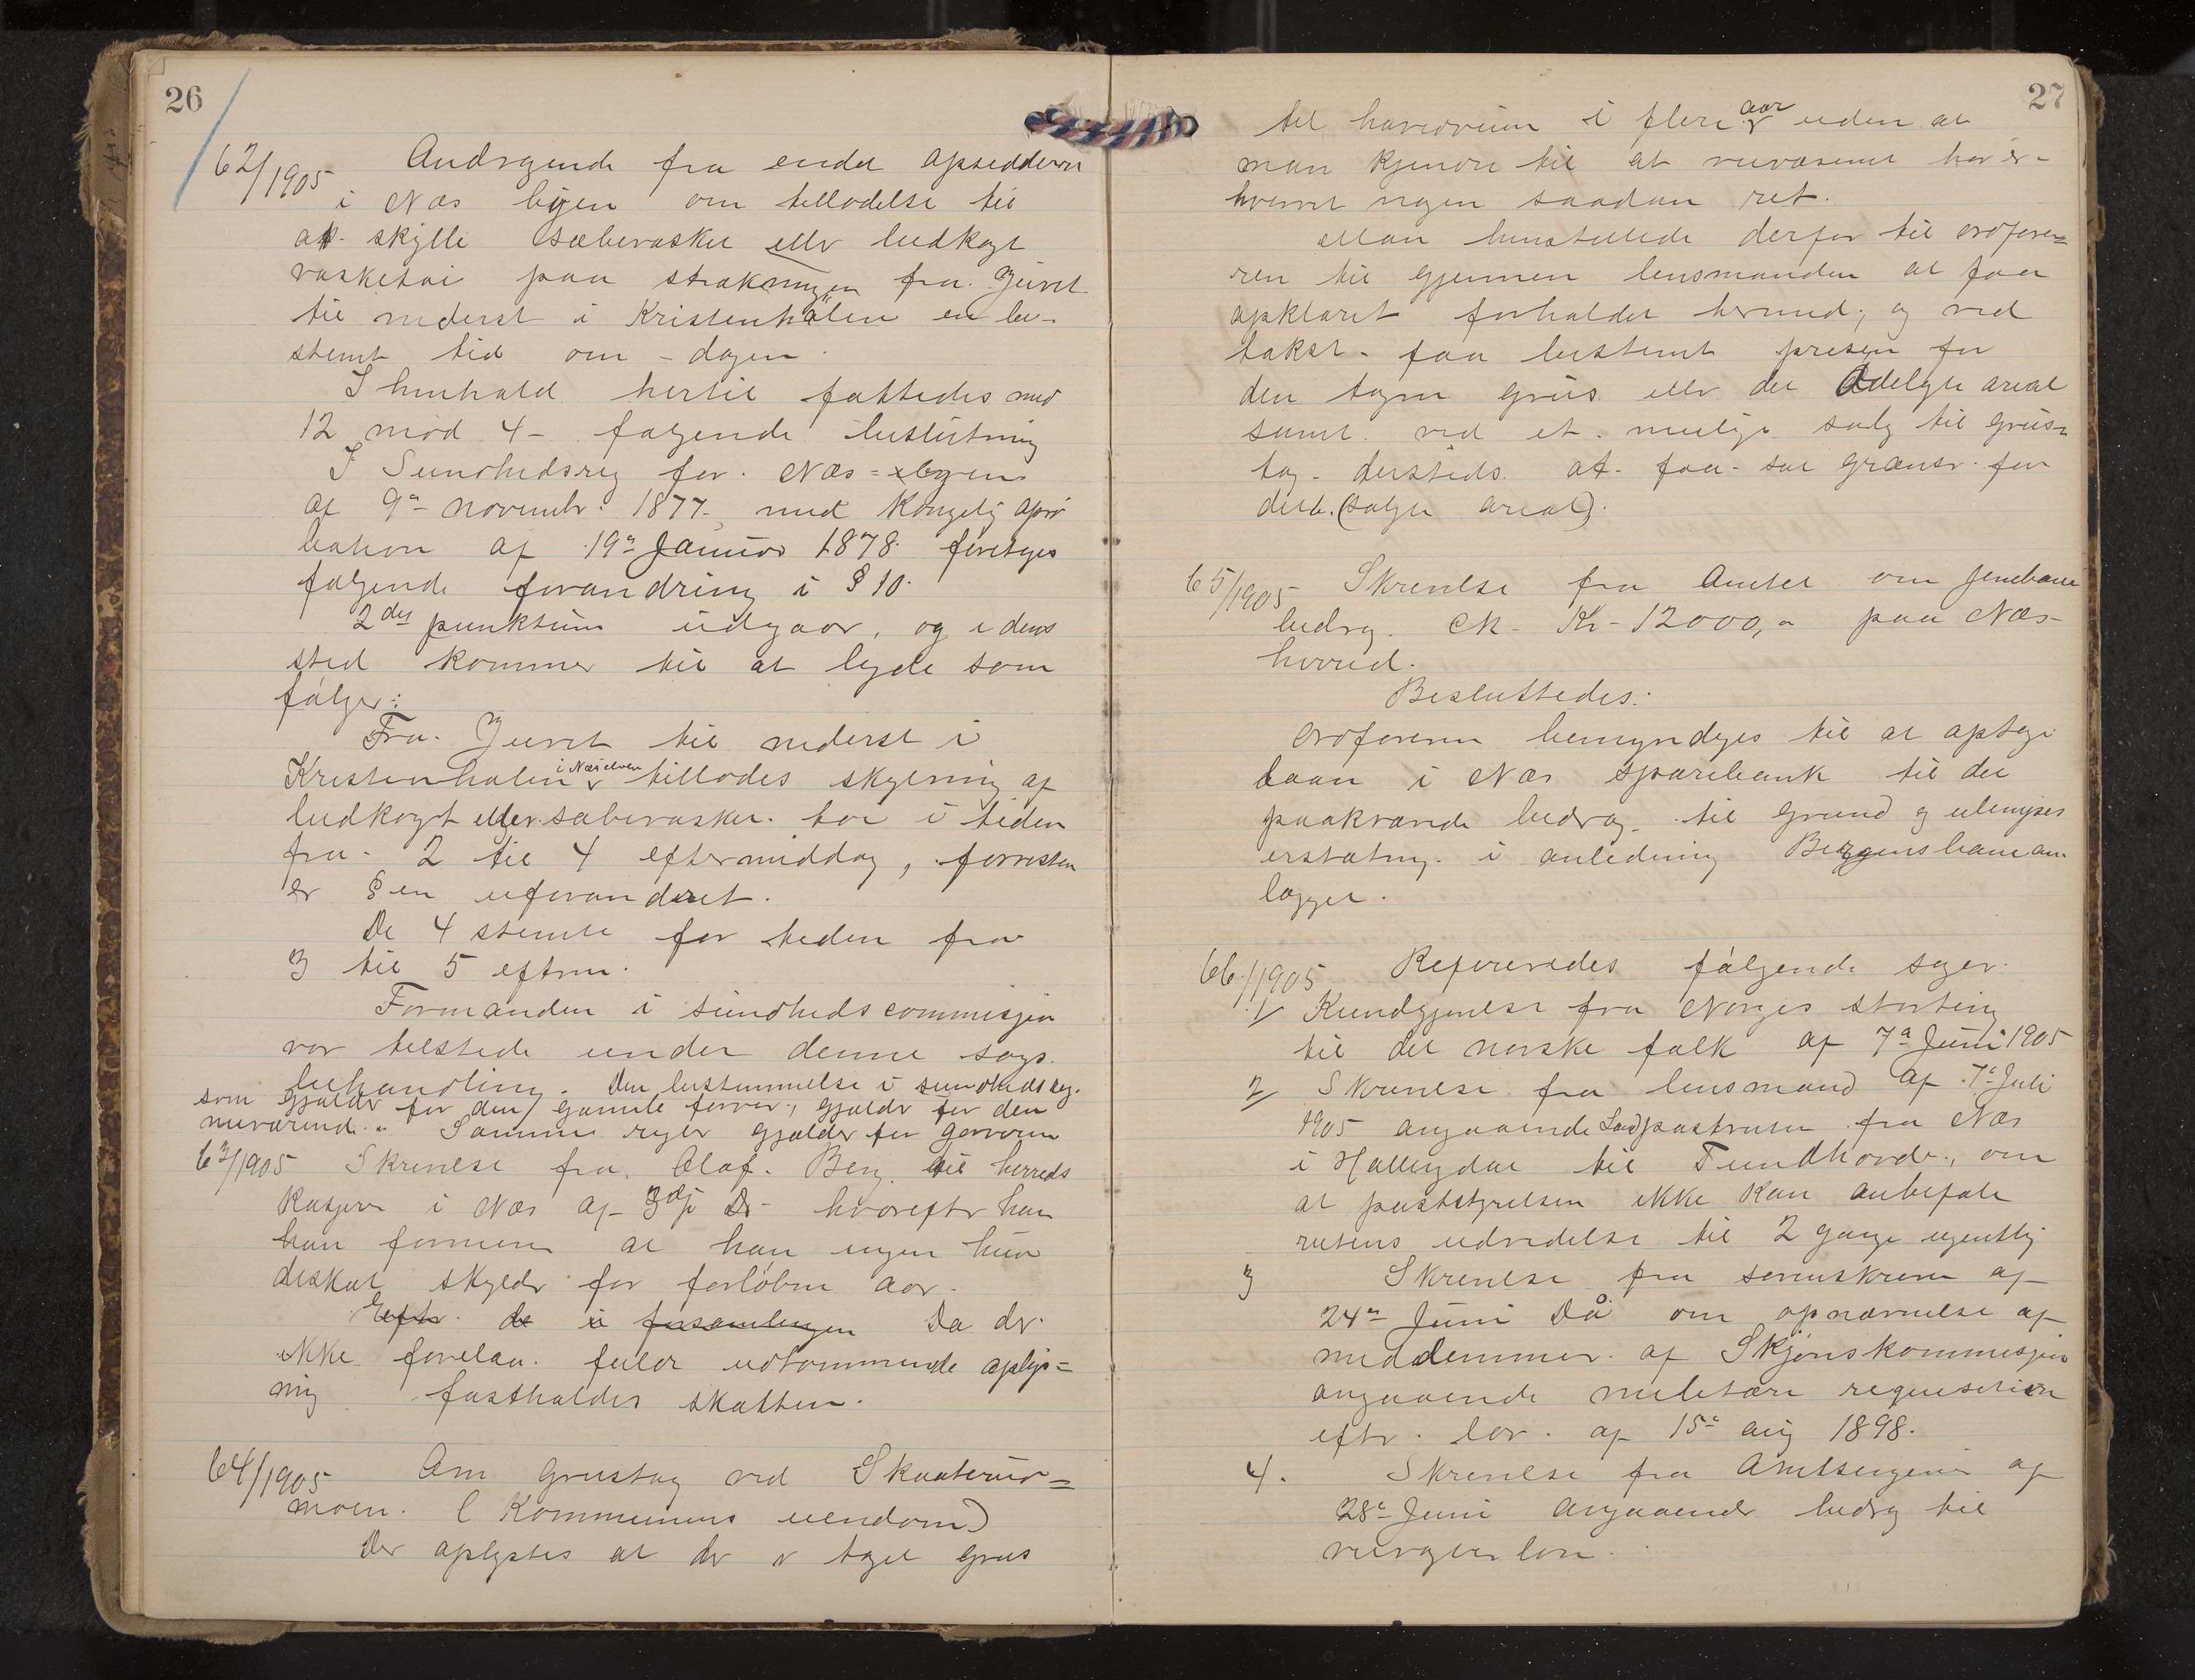 26
62/1905 Andragende fra endel opsiddere
i Næs byen om tilladelse til
at skylle sæbevasket eller ludkogt
vasketøi paa strækningen fra Juvet
til nederst i Kristenhølen en be-
stemt tid om dagen.
I henhold hertil fattedes med
12 mod 4 - følgende beslutning
I Sundhedsreg for Næs=byen
af 9de november 1877, med Kongelig apro
bation af 19de Januar 1878 foretages
følgende forandring i § 10.
2det punktum udgaar, og i dens
sted kommer til at lyde som
følger:
Fra Juvet til nederst i
Kristenhølen i Næselven tillades skylning af
ludkogt eller sæbevasket tøi i tiden
fra 2 til 4 eftermiddag, forresten
er § en uforandret.
De 4 stemte for tiden fra
3 til 5 efterm.
Formanden i sundhedscommisjon
var tilstede under denne sags
behandling. Den bestemmelse i sundhedsreg.
som gjælder for den gamle farver, gjælder for den
nuværende. Samme regler gjælder for garveren
63/1905 Skrivelse fra Olaf Berg til herreds
kasjerer i Næs af 3dje Ds hvorefter han
han formener at han ingen hun
deskat skylder for forløbne aar.
Efter de i forsamlingen Da der
ikke forelaa fuldt udtømmende oplys=
ning fastholdes skatten.
64/1905 Om grustag ved Skaaterud=
moen. (Kommunens eiendom)
Der oplystes at der er taget grus
27
til hovedveien i flere aar uden at
man kjender til at veivæsenet har er-
hvervet nogen saadan ret.
Man henstillede derfor til ordføre=
ren til gjennem lensmanden at faa
opklaret forholdet hermed, og ved
takst faa bestemt prisen for
den tagne grus eller det ødelagte areal
samt ved et mulige salg til grus=
tag dersteds at faa sat grænser for
dette (solgte areal).
65/1905 Skrivelse fra Amtet om jernbane
bidrag. Ca Kr 12000,- paa Næs
herred.
Besluttedes:
Ordføreren bemyndiges til at optage
laan i Næs sparebank til det
paakrævede bidrag til grund og ulempes
erstatning i anledning Bergensbanean
lægget.
66/1905 Refereredes følgende sager.
1/ Kundgjørelse fra Norges storting
til det norske folk af 7de Juni 1905
2/ Skrivelse fra lensmand af 7de Juli
1905 angaaende Landpostruten fra Næs
i Hallingdal til Tundhovd, om
at poststyrelsen ikke kan anbefale
rutens udvidelse til 2 gange ugentlig
3 Skrivelse fra sorenskriver af
24de Juni Då om opnævnelse af
meddemmer af Skjønskommisjon
angaaende militære requisition
efter lov af 15de aug 1898.
4. Skrivelse fra Amtsingeniør af
28de Juni angaaende bidrag til
veivogterløn.